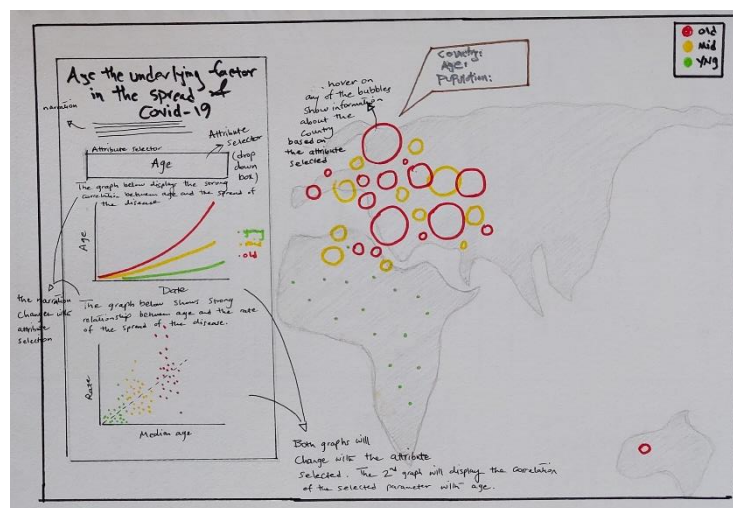 Age the underlying factor
in the spread of
Covid-19
narration
Attribute selector
Attribute
selector
(drop
down
box)
Age
The graph below display the strong
correlation between age and the spread of
the disease
Age
Date
old
the narration
changes with
attribute
selection
The graph below shows strong
relationship between age and the rate
of the spread of the disease.
Rate
Median age
hover on
any of the bubbles
show information
about the
County
based on
the attribute
selected
Country:
Age:
Population:
Old
Mid
YNg
Both graphs will
Change with the attribute
selected. The 2nd graph will display the correlation
of the selected parameter with age.